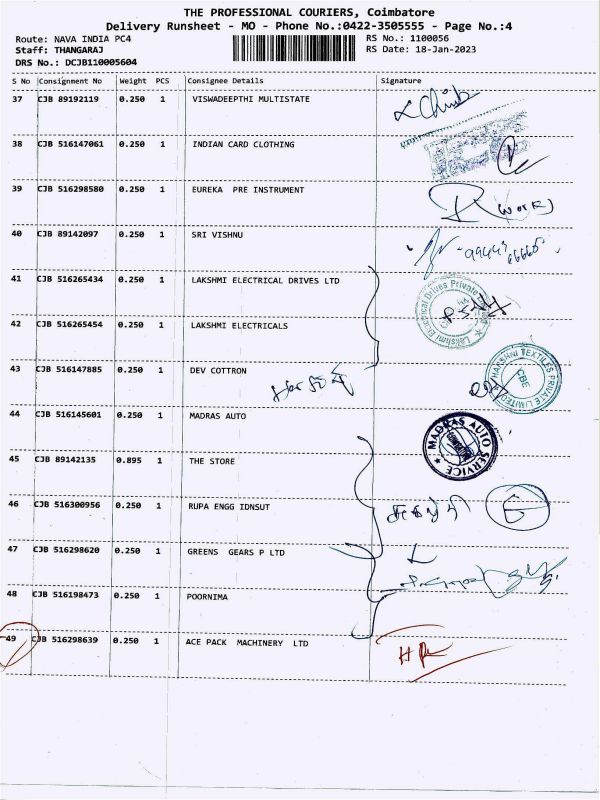 THE PROFESSIONAL COURIERS, Coimbatore
Delivery Runsheet - MO - Phone No.:0422-3505555 - Page No.:4
Route: NAVA INDIA PC4 RS No.: 1100056
Staff: THANGARAJ RS Date: 18-Jan-2023
DRS No.: DCJB110005604
S No Consignment No Weight PCS Consignee Details Signature
37 CJB 89192119 0.250 1 VISWADEEPTHI MULTISTATE
38 CJB 516147061 0.250 1 INDIAN CARD CLOTHING
39 CJB 516298580 0.250 1 EUREKA PRE INSTRUMENT
(work)
40 CJB 89142097 0.250 1 SRI VISHNU
41 CJB 516265434 0.250 1 LAKSHMI ELECTRICAL DRIVES LTD
Lakshmi Electrical Drives Private
42 CJB 516265454 0.250 1 LAKSHMI ELECTRICALS
43 CJB 516147885 0.250 1 DEV COTTRON
HARSHNI TEXTILES PRIVATE LIMITED
CBE
44 CJB 516145601 0.250 1 MADRAS AUTO
MADRAS AUTO SERVICE
45 CJB 89142135 0.895 1 THE STORE
46 CJB 516300956 0.250 1 RUPA ENGG IDNSUT
47 CJB 516298620 0.250 1 GREENS GEARS P LTD
48 CJB 516198473 0.250 1 POORNIMA
49 CJB 516298639 0.250 1 ACE PACK MACHINERY LTD